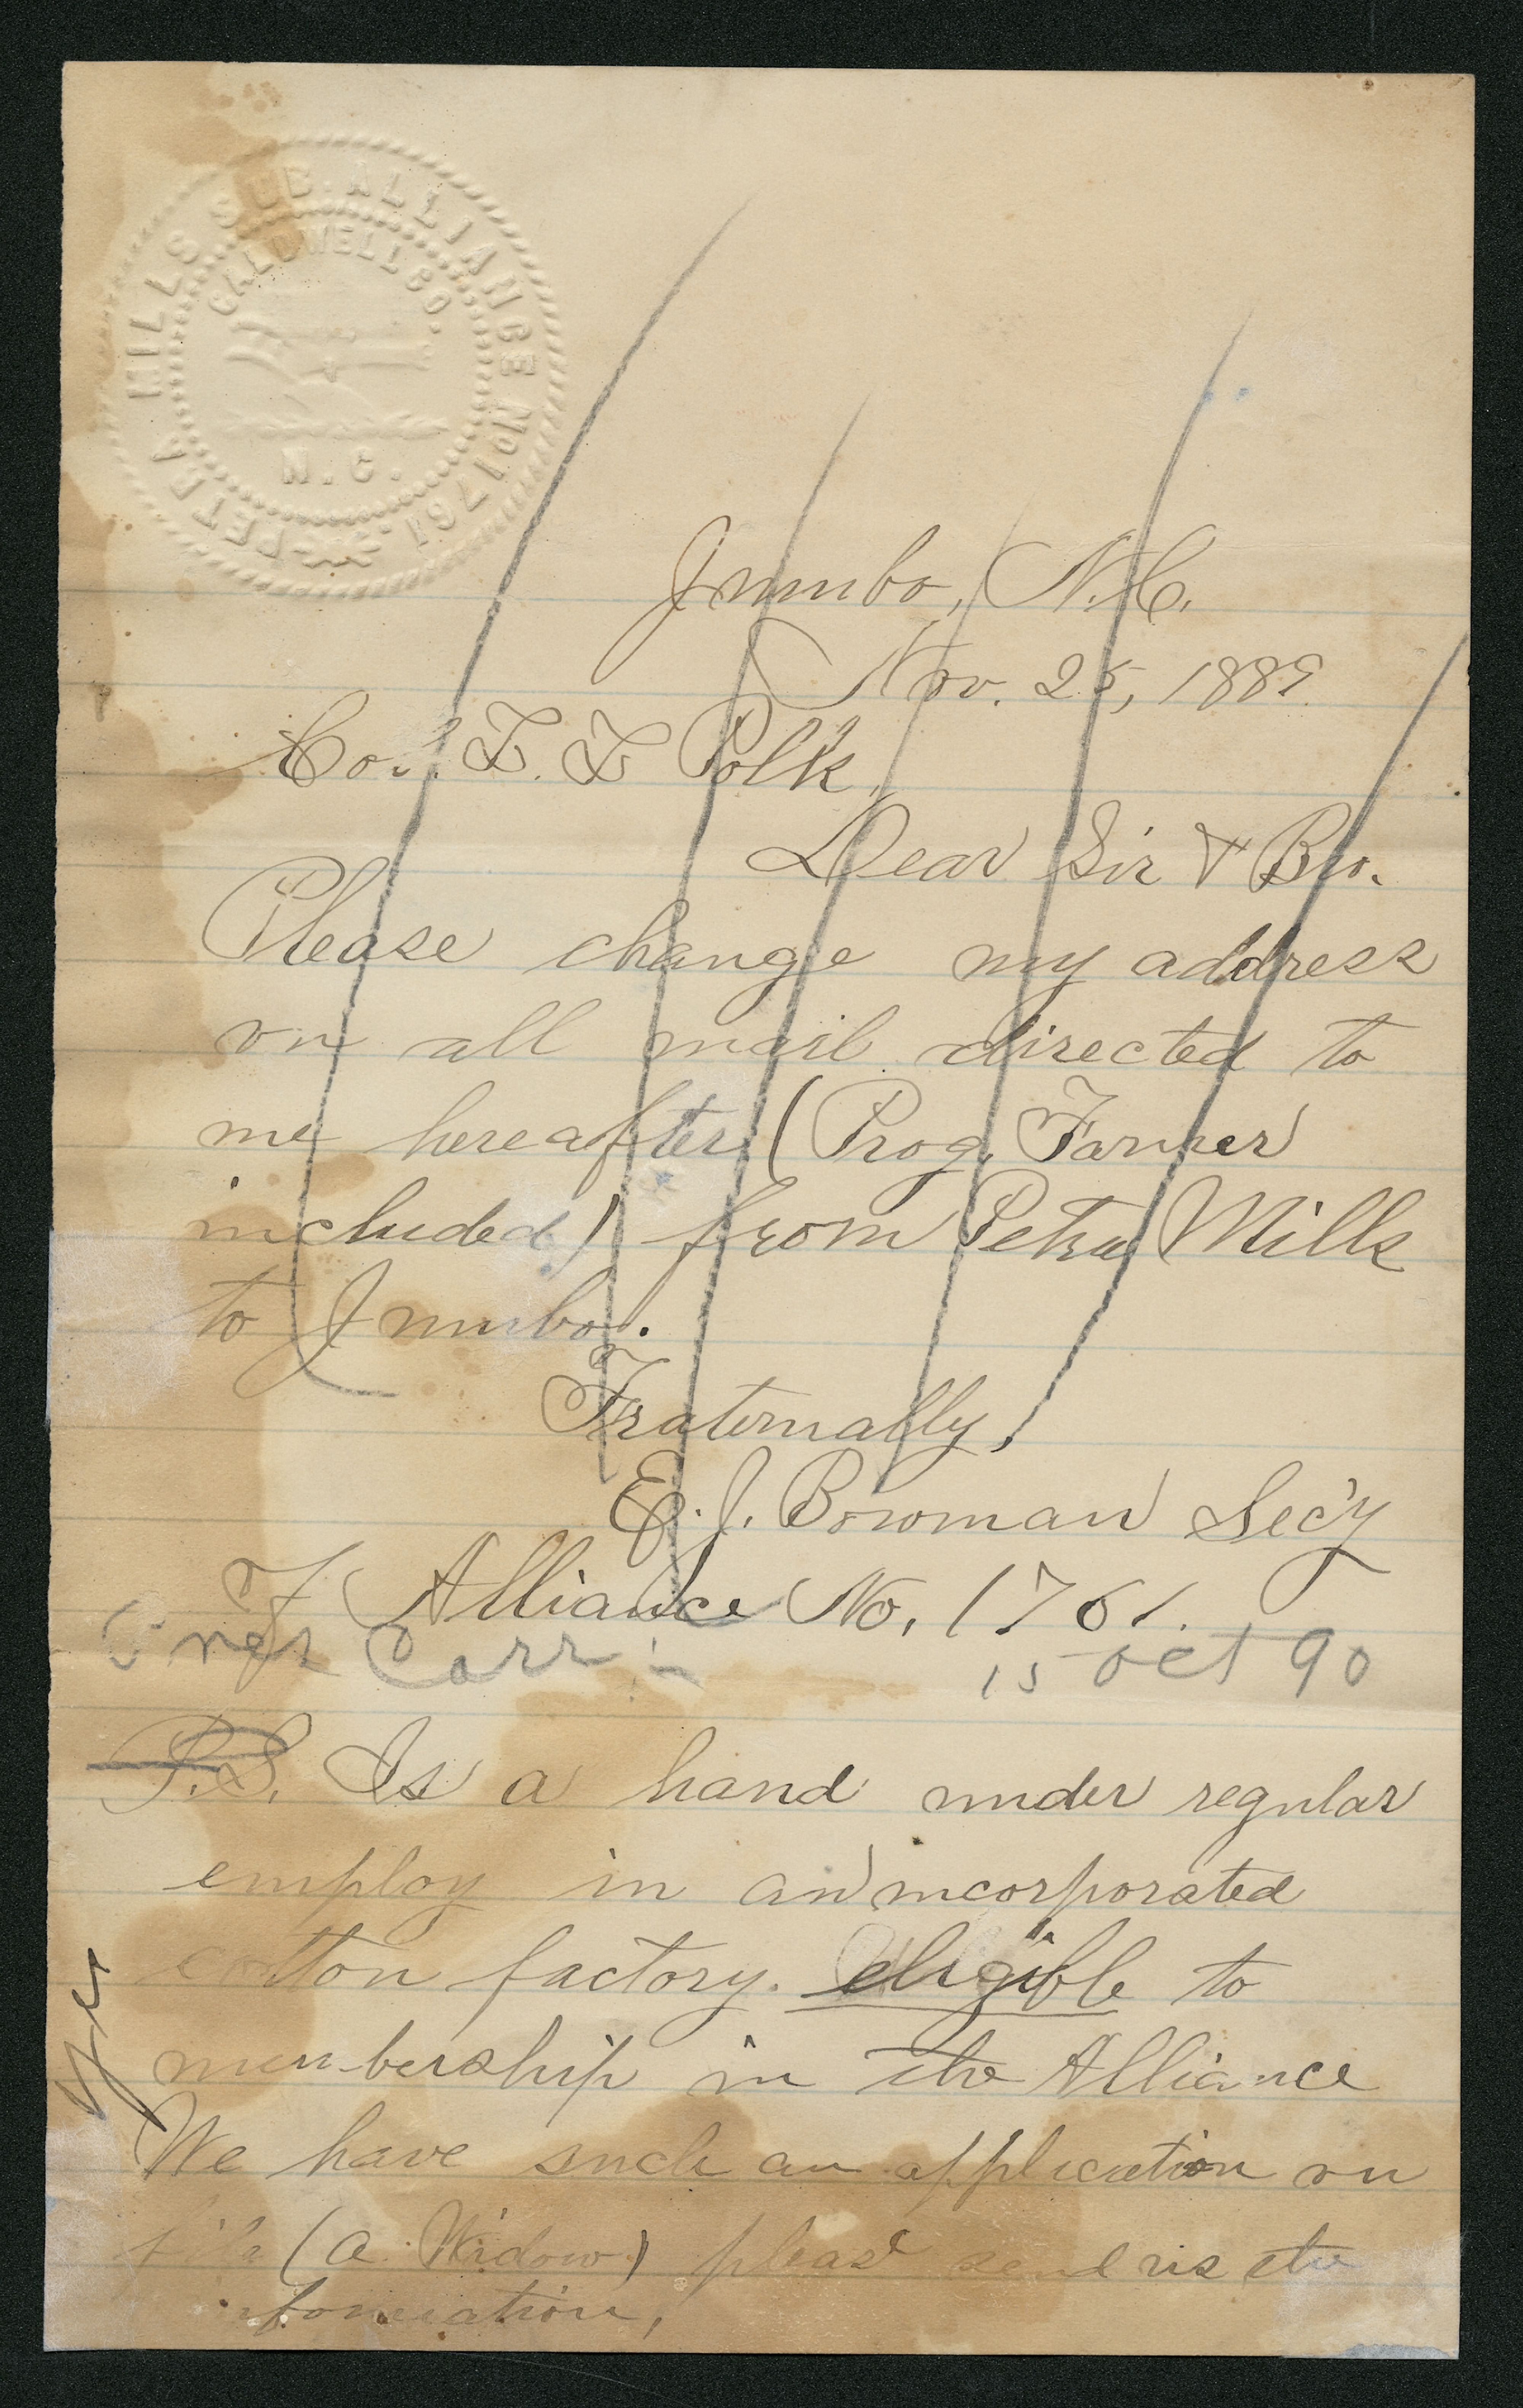 PETRA MILLS SUB. ALLIANCE No 1761.
CALDWELL CO.
N.C.
Jumbo, N.C.
Nov. 25, 1889.
Col. L. L. Polk,
Dear Sir & Bro.
Please change my address
on all mail directed to
me hereafter (Prog. Farmer
included) from Petra Mills
to Jumbo.
Fraternally,
E. J. Bowman Sec'y
F Alliance No. 1761.
Carr 15 Oct 90
P.S. Is a hand under regular
employ in an incorporated
cotton factory. eligible to
membership in the Alliance
We have such an application on
file (a Widow) please send us the
information,
yes